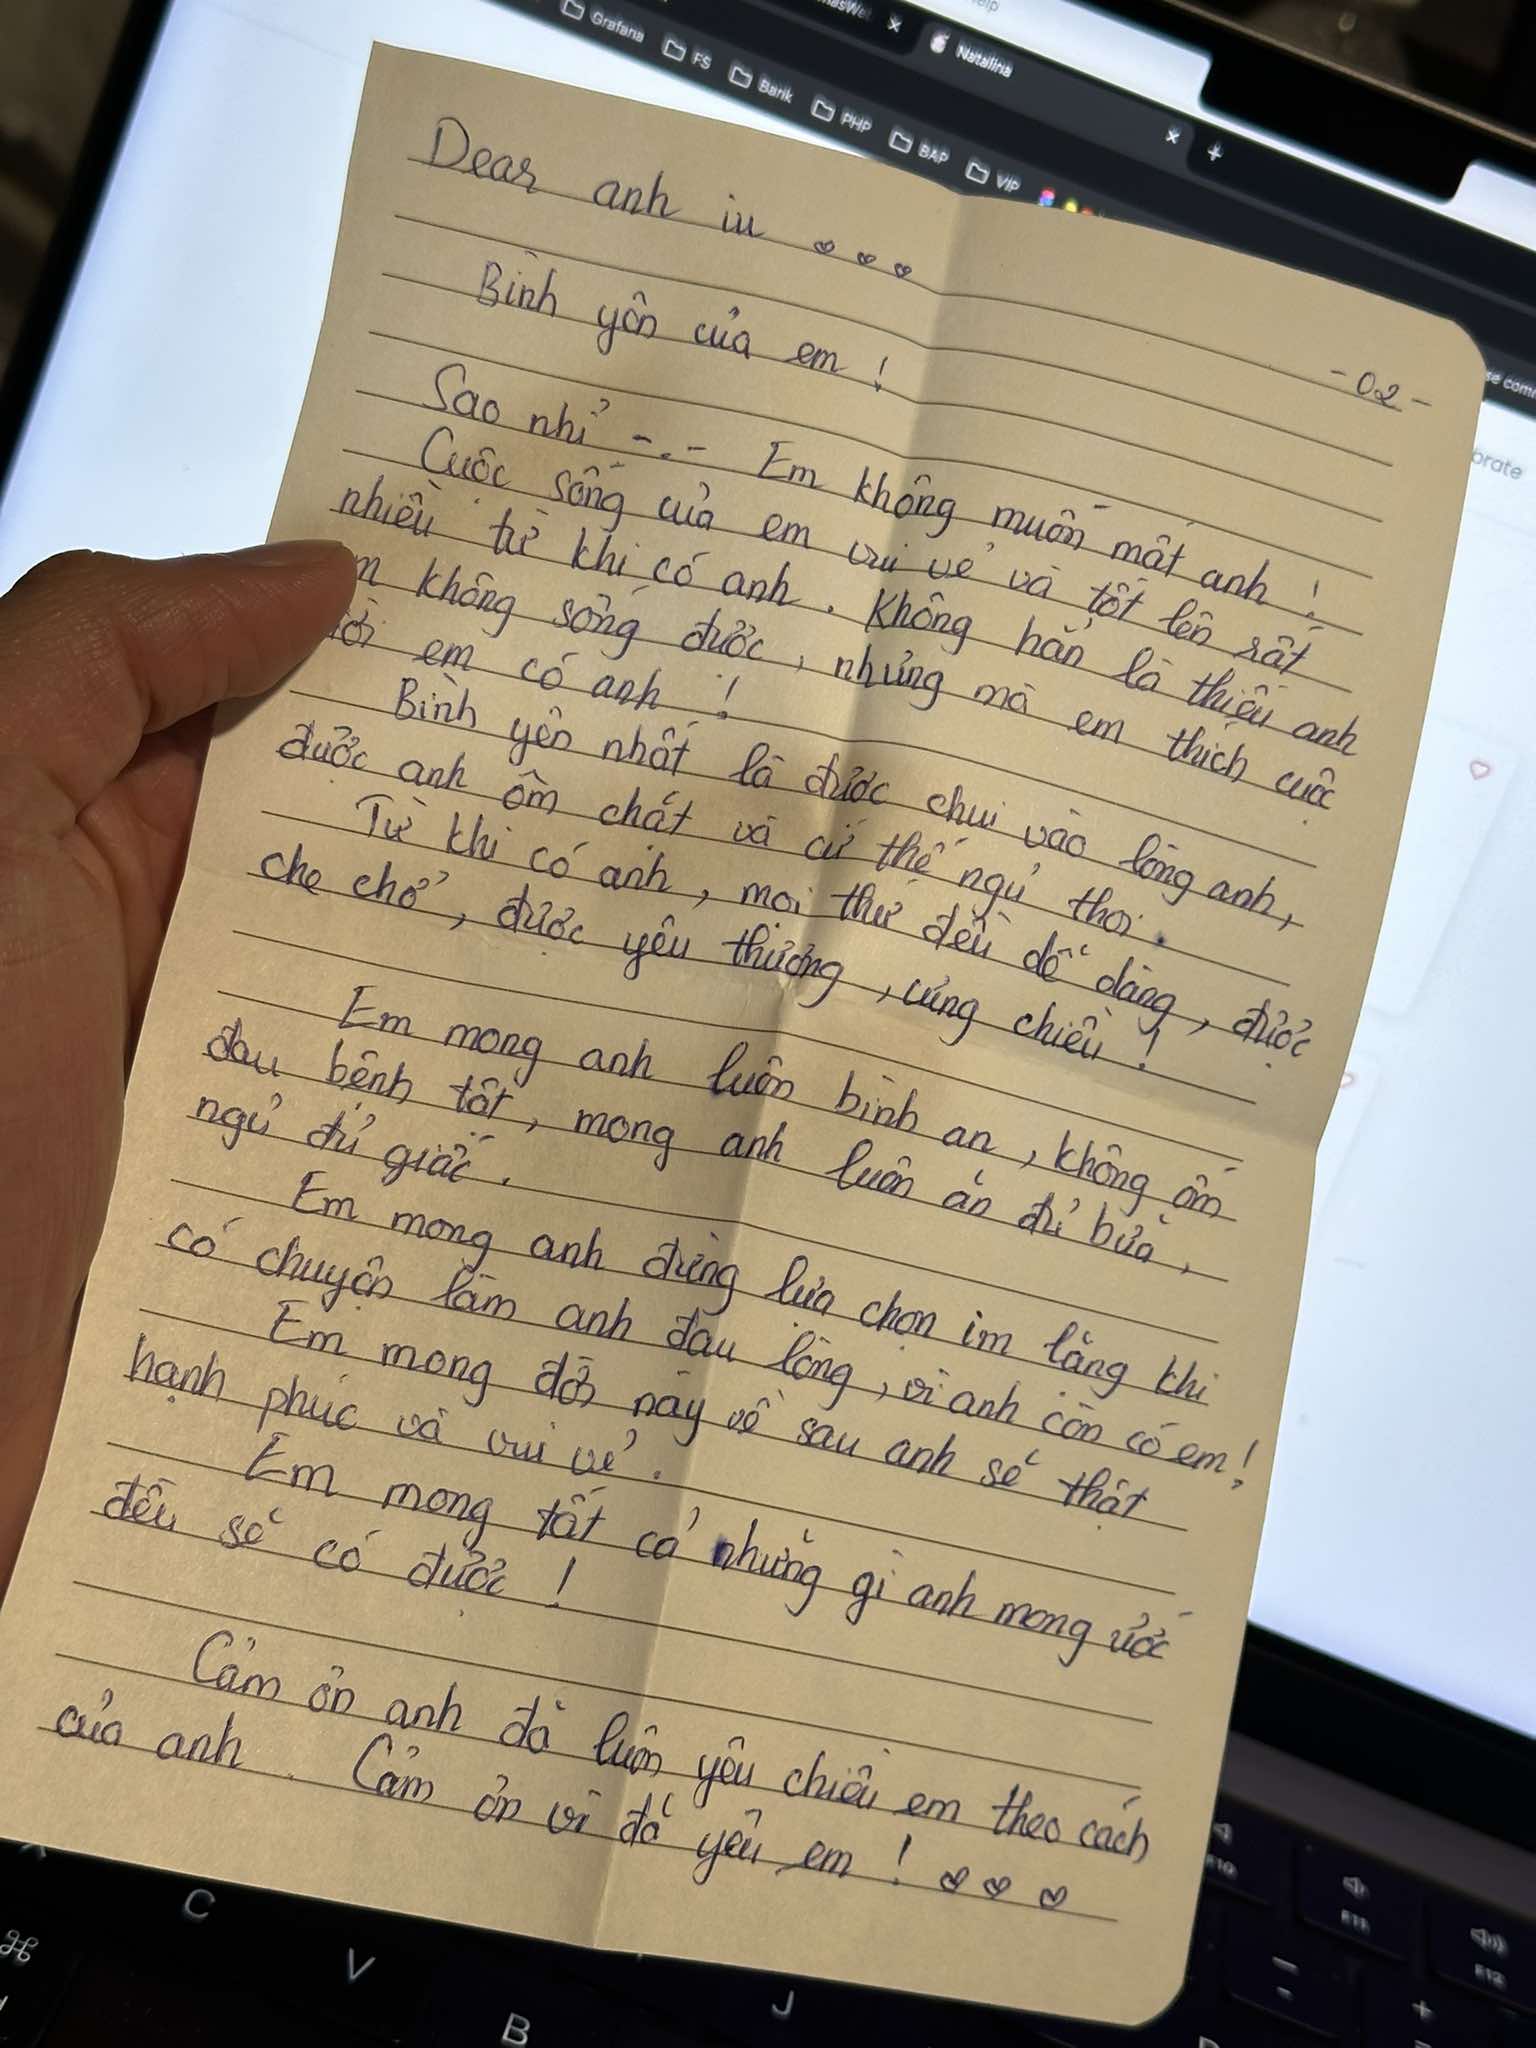 Grafana
FS
Barik
PHP
BAP
VIP
Natalina
Dear anh iu ♡♡♡
-02-
Bình yên của em !
Sao nhỉ -.- Em không muốn mất anh !
Cuộc sống của em vui vẻ và tốt lên rất
nhiều từ khi có anh. Không hẳn là thiếu anh
em không sống được, nhưng mà em thích cuộc
đời em có anh !
Bình yên nhất là được chui vào lòng anh,
được anh ôm chặt và cứ thế ngủ thôi.
Từ khi có anh, mọi thứ đều dễ dàng, được
che chở, được yêu thương, cưng chiều !
Em mong anh luôn bình an, không ốm
đau bệnh tật, mong anh luôn ăn đủ bữa,
ngủ đủ giấc.
Em mong anh đừng lựa chọn im lặng khi
có chuyện làm anh đau lòng, vì anh còn có em !
Em mong đời này về sau anh sẽ thật
hạnh phúc và vui vẻ.
Em mong tất cả những gì anh mong ước
đều sẽ có được !
Cảm ơn anh đã luôn yêu chiều em theo cách
của anh. Cảm ơn vì đã yêu em ! ♡♡♡
C
V
B
J
F10
F11
F12